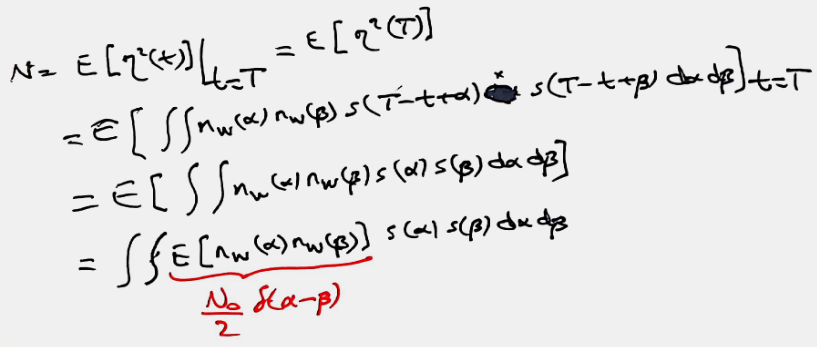 N = E[η²(t)]|t=T = E[η²(T)]
= E[∫∫ n_w(α) n_w(β) s(T-t+α) × s(T-t+β) dα dβ] t=T
= E[∫∫ n_w(α) n_w(β) s(α) s(β) dα dβ]
= ∫∫ E[n_w(α) n_w(β)] s(α) s(β) dα dβ
N₀/2 δ(α-β)